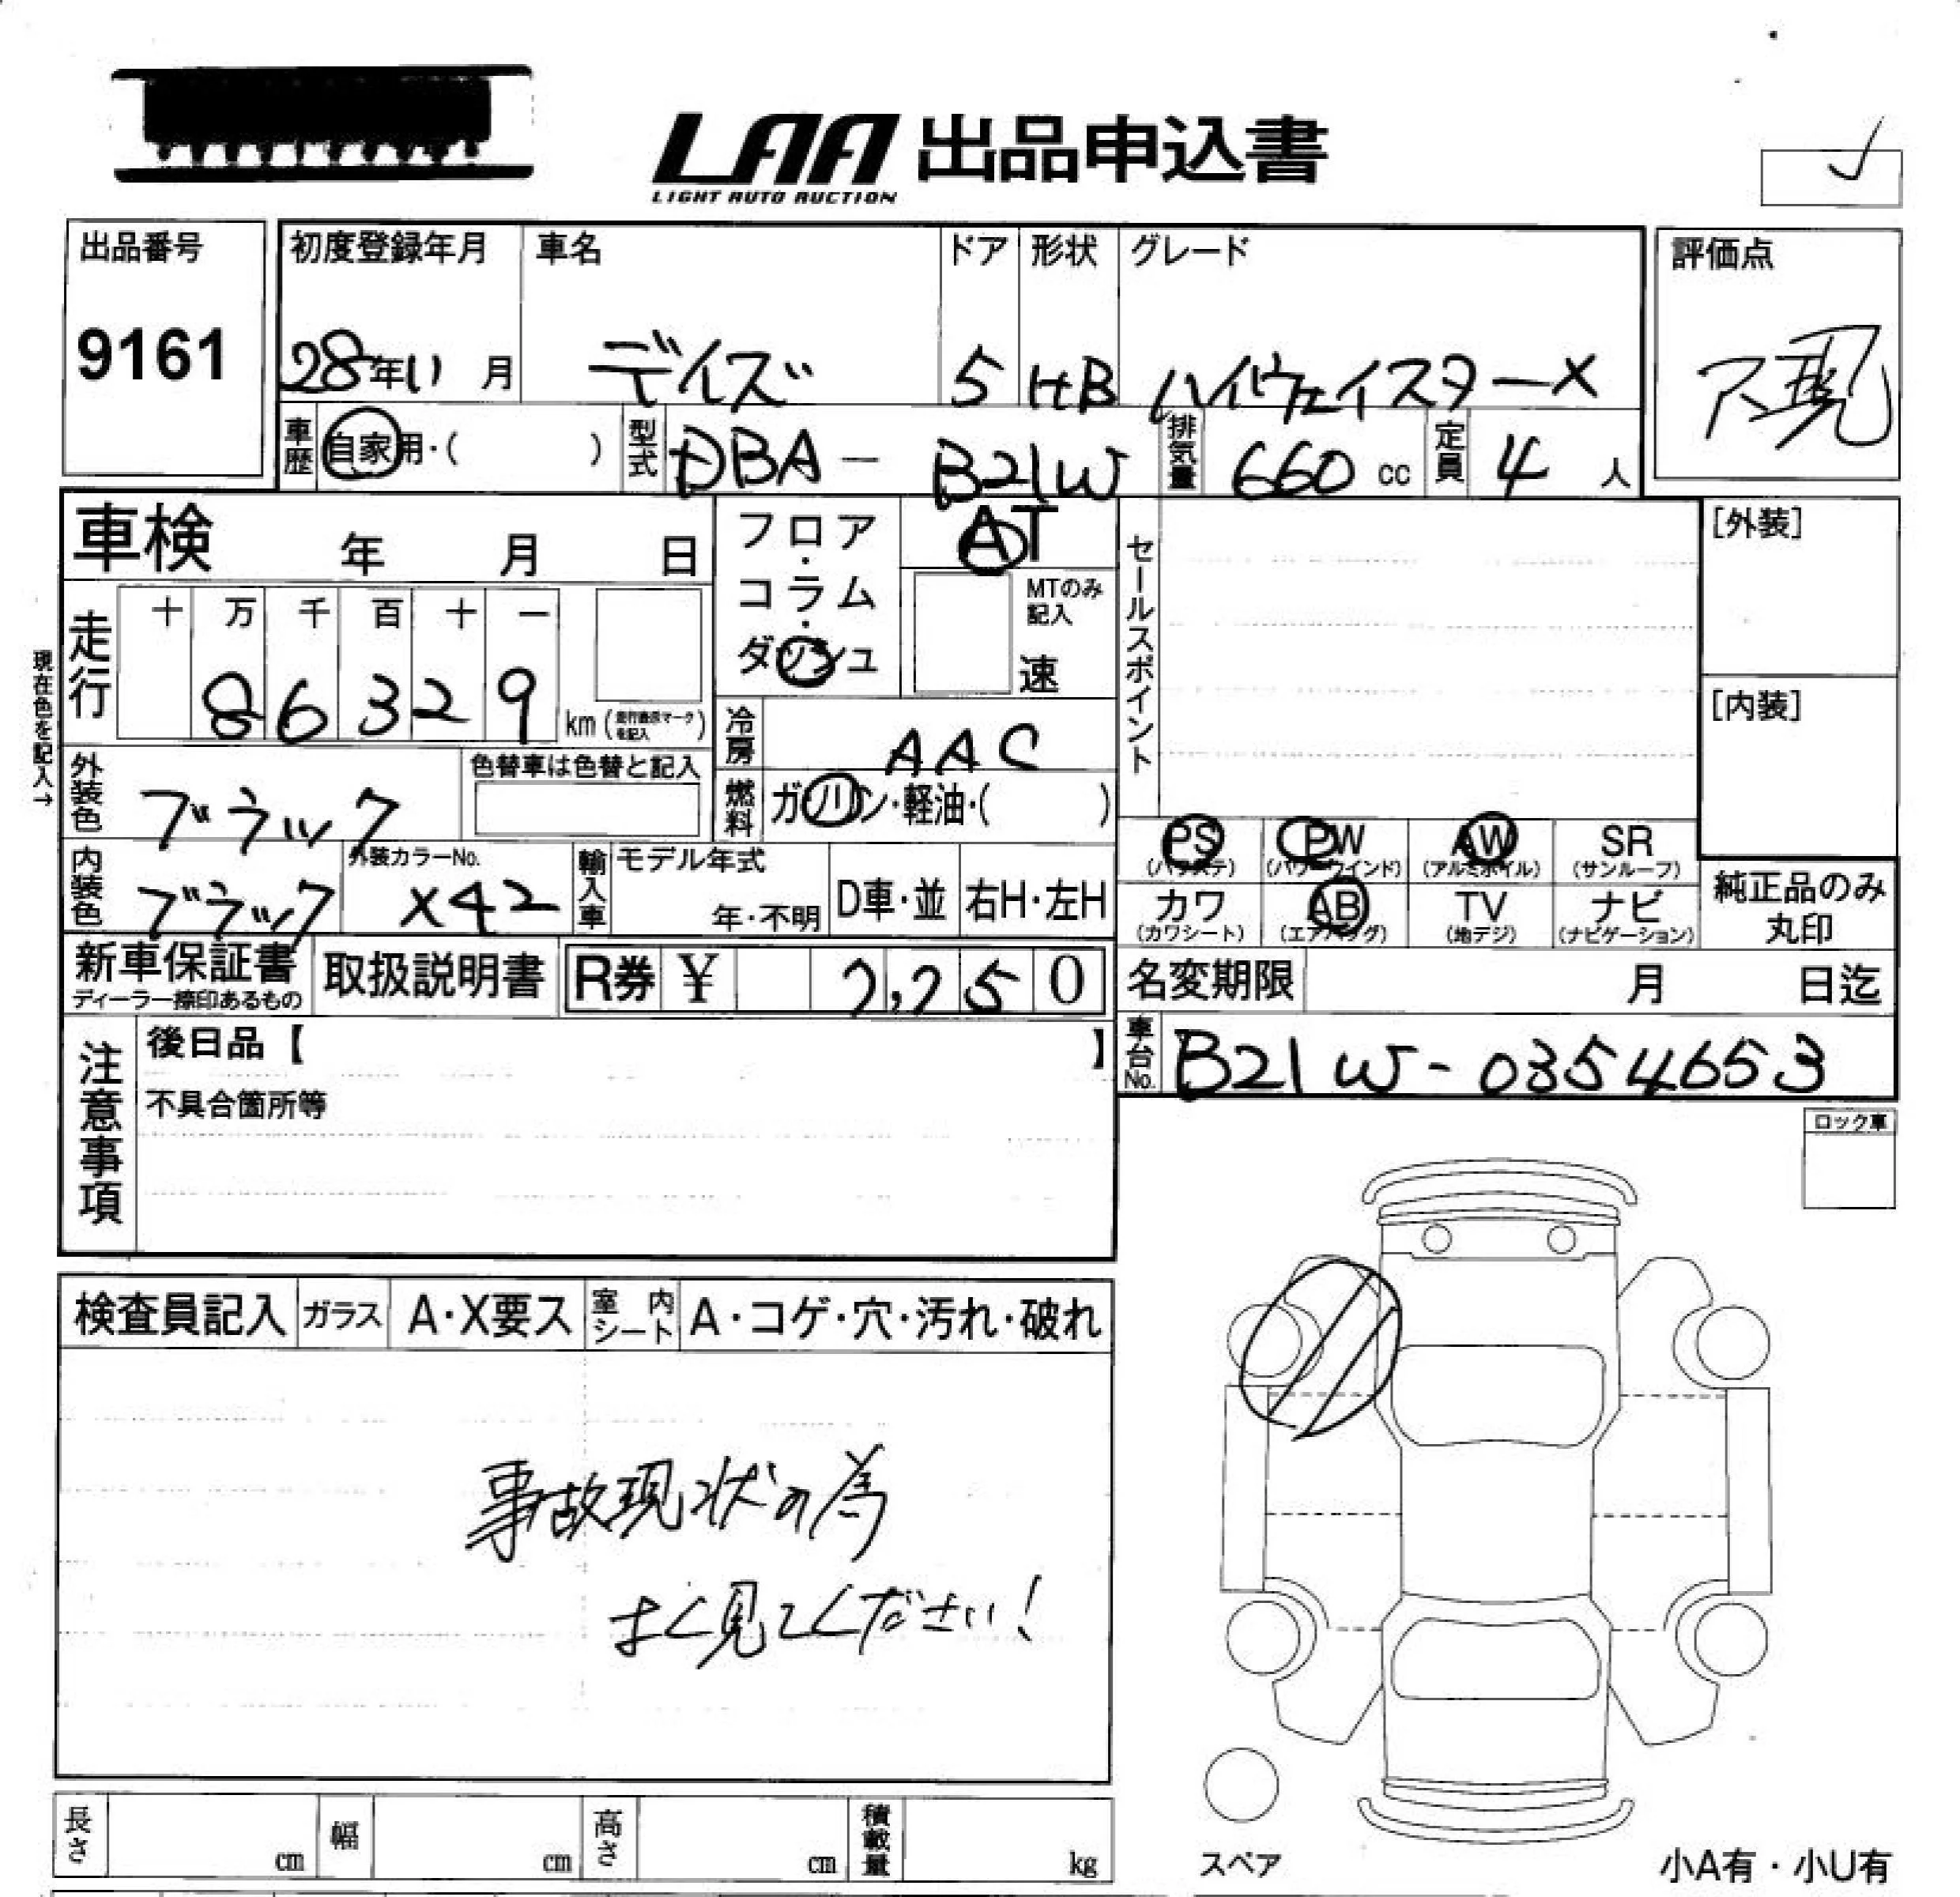 LAA 出品申込書
LIGHT AUTO AUCTION
出品番号
9161
初度登録年月
28年11月
車名
デイズ
ドア
5
形状
HB
グレード
ハイウェイスターX
評価点
不現
車歴
自家用・( )
型式
DBA - B21W
排気量
660 cc
定員
4 人
車検 年 月 日
フロア・コラム・ダッシュ
AT
MTのみ記入
速
走行
十 万 千 百 十 一
8 6 3 2 9
km (走行距離マークを記入)
現在色を記入→
冷房
AAC
燃料
ガソリン・軽油・( )
外装色
ブラック
色替車は色替と記入
内装色
ブラック
外装カラーNo.
X42
輸入車
モデル年式
年・不明
D車・並
右H・左H
セールスポイント
[外装]
[内装]
PS (パワステ)
PW (パワーウインド)
AW (アルミホイル)
SR (サンルーフ)
カワ (カワシート)
AB (エアバッグ)
TV (地デジ)
ナビ (ナビゲーション)
純正品のみ
丸印
新車保証書
ディーラー捺印あるもの
取扱説明書
R券 ¥ 7,250
名変期限 月 日迄
車台No.
B21W-0354653
注意事項
後日品【 】
不具合箇所等
ロック車
検査員記入
ガラス
A・X要ス
室内シート
A・コゲ・穴・汚れ・破れ
事故現状の為
よく見てください!
長さ cm
幅 cm
高さ cm
積載量 kg
スペア
小A有・小U有